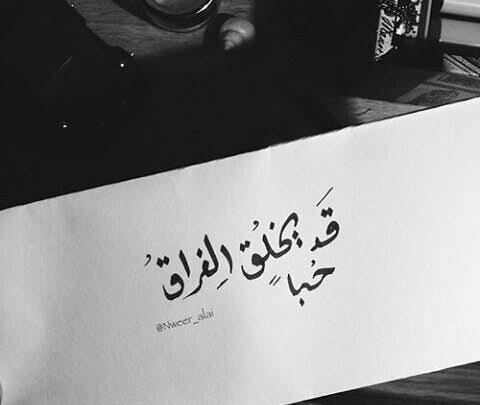 قَد يخلُق الفِراقُ
حُباً
@Nweer_alai